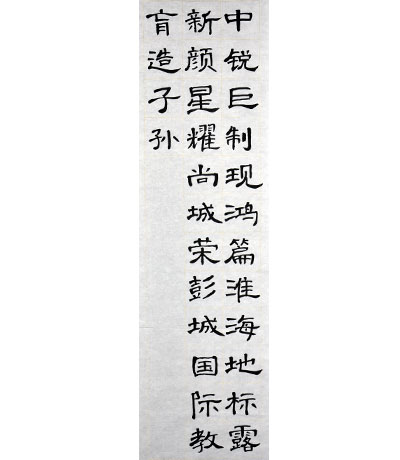 中锐巨制现鸿篇淮海地标露
新颜星耀尚城荣彭城国际教
育造子孙